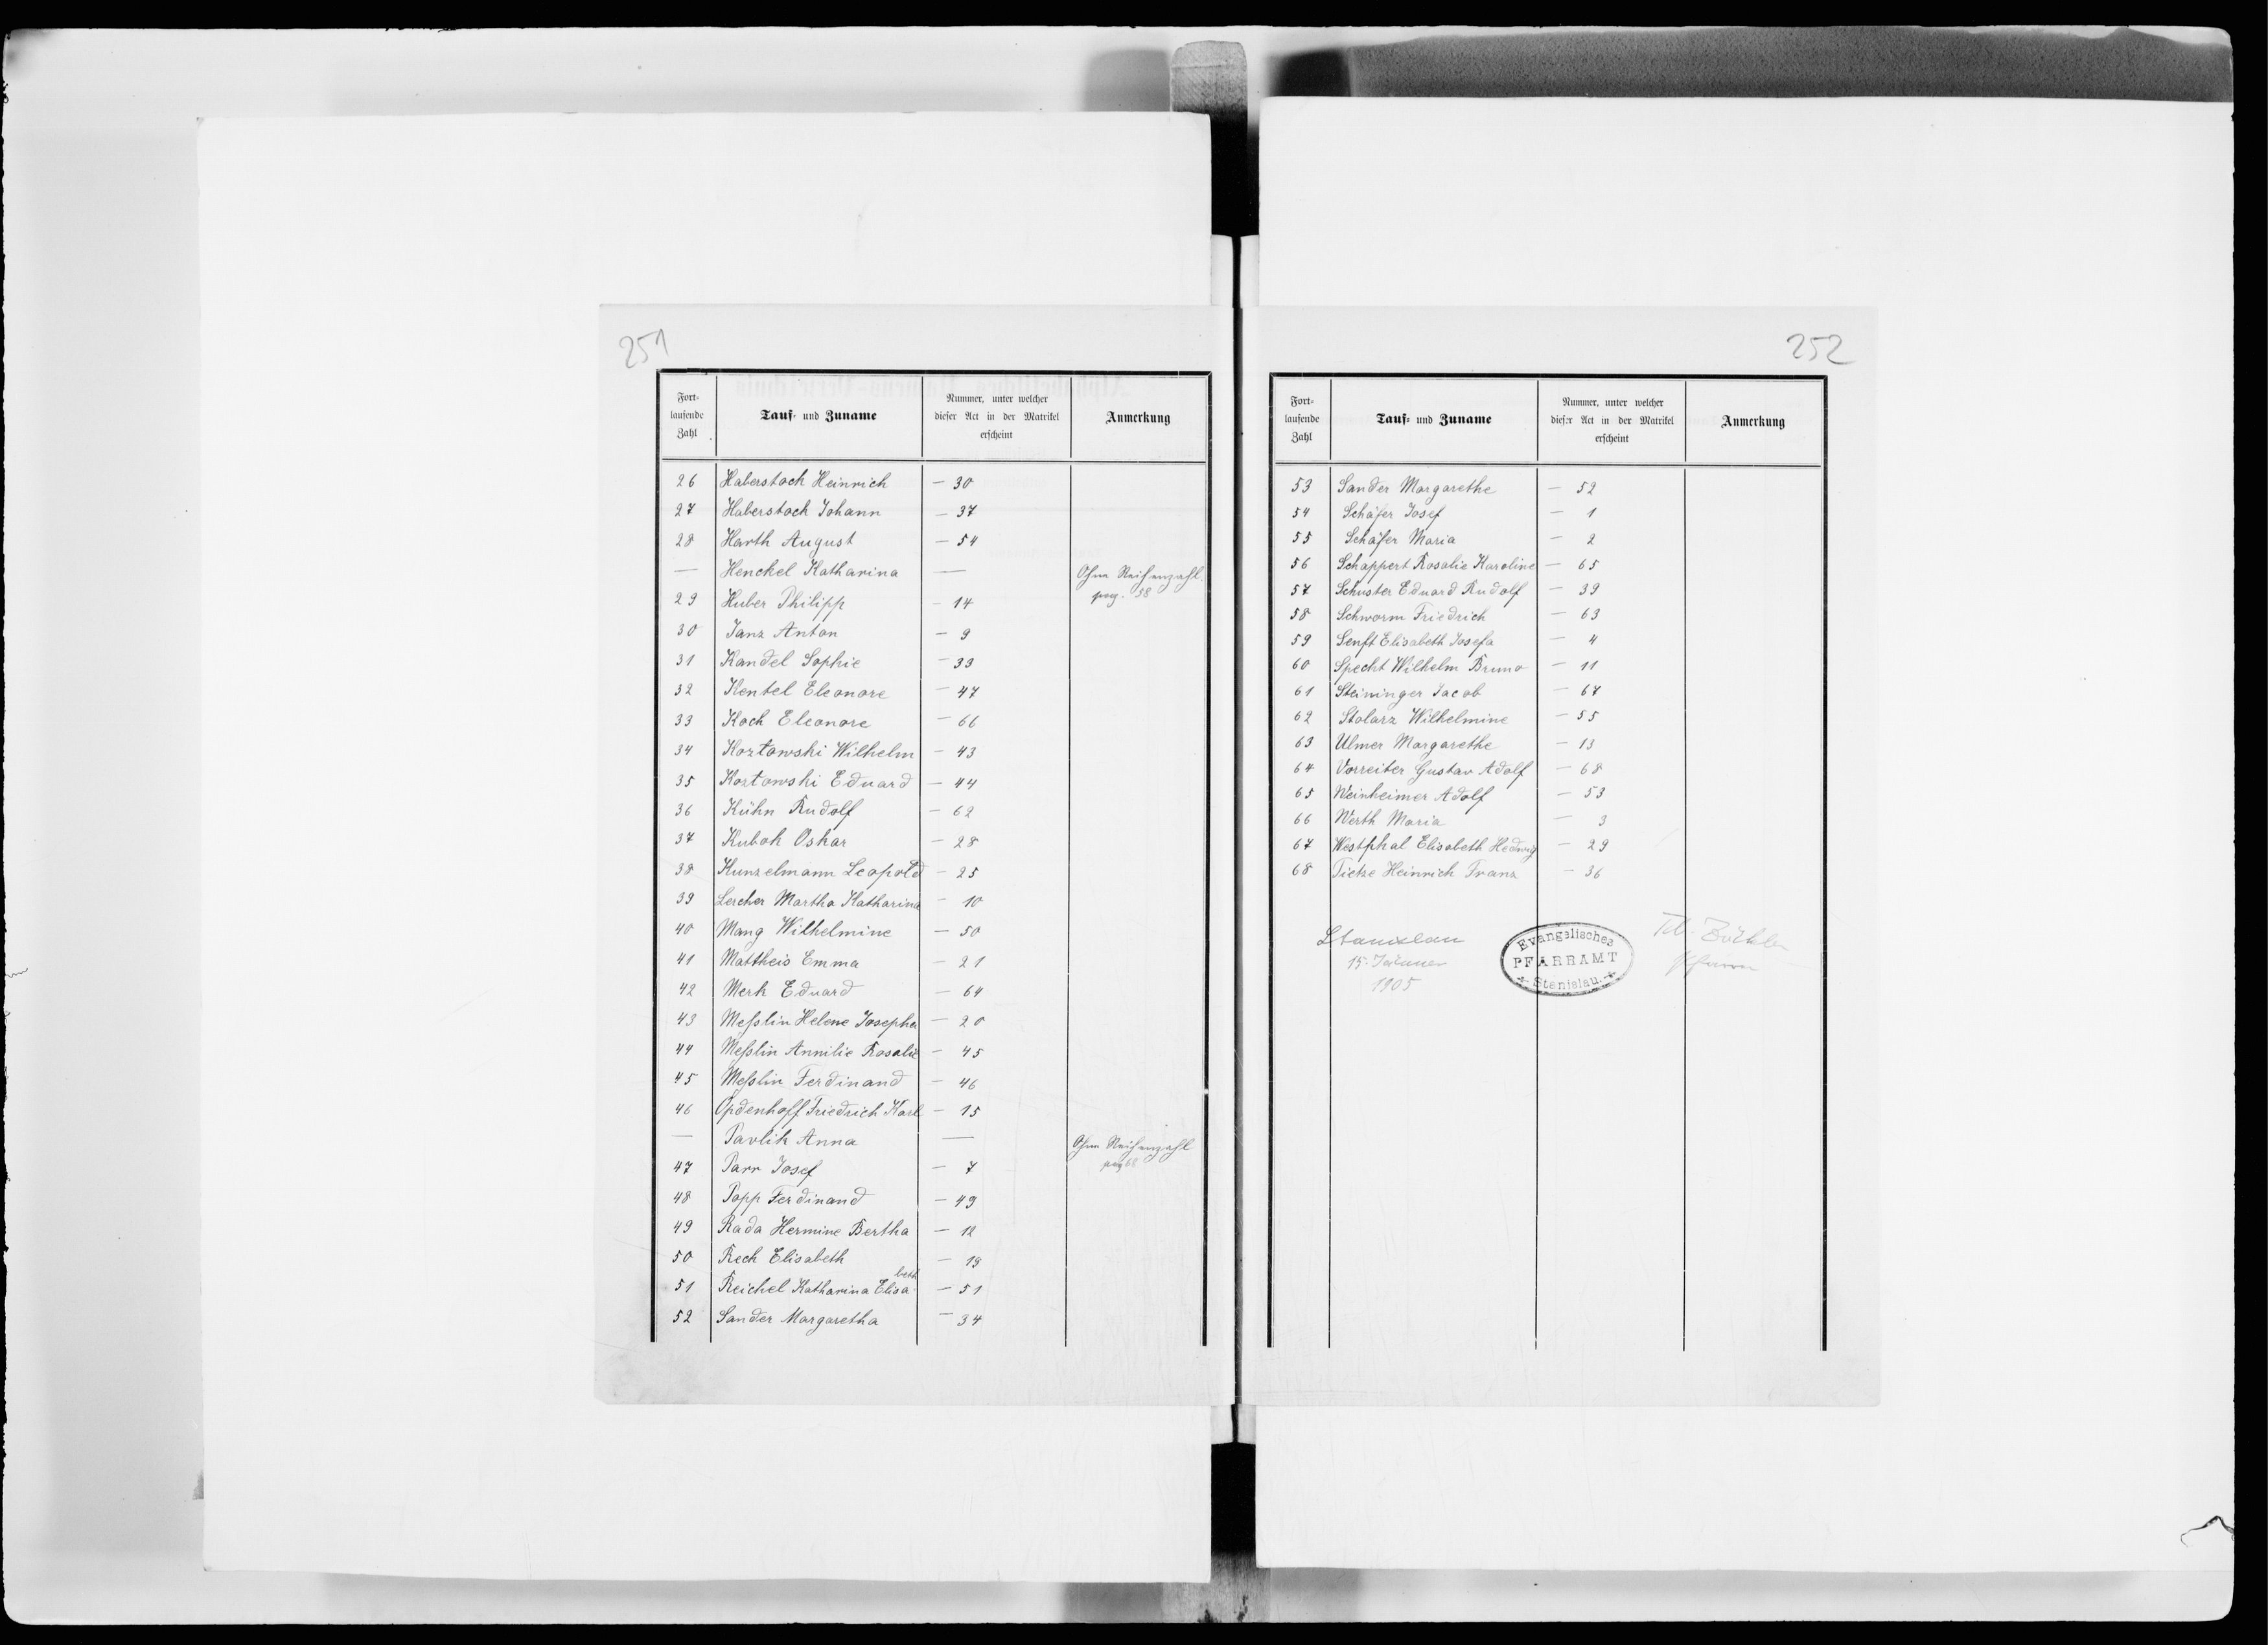 251
Fort-
laufende
Zahl
Tauf- und Zuname
Nummer, unter welcher
dieser Act in der Matrikel
erscheint
Anmerkung
26 Haberstock Heinrich — 30
27 Haberstock Johann — 37
28 Harth August — 54
— Henckel Katharina — Ohne Reihenzahl
pag. 58
29 Huber Philipp — 14
30 Janz Anton — 9
31 Kandel Sophie — 33
32 Kentel Eleonore — 47
33 Koch Eleonore — 66
34 Kozłowski Wilhelm — 43
35 Kozłowski Eduard — 44
36 Kühn Rudolf — 62
37 Kubok Oskar — 28
38 Kunzelmann Leopold — 25
39 Lercher Martha Katharina — 10
40 Mang Wilhelmine — 50
41 Mattheis Emma — 21
42 Merk Eduard — 64
43 Meßlin Helene Josepha — 20
44 Meßlin Annilie Rosalie — 45
45 Meßlin Ferdinand — 46
46 Opdenhoff Friedrich Karl — 15
— Pavlik Anna — Ohne Reihenzahl
pag 68
47 Parr Josef — 7
48 Popp Ferdinand — 49
49 Rada Hermine Bertha — 12
50 Rech Elisabeth — 19
51 Reichel Katharina Elisabeth — 51
52 Sander Margaretha — 34
252
Fort-
laufende
Zahl
Tauf- und Zuname
Nummer, unter welcher
dieser Act in der Matrikel
erscheint
Anmerkung
53 Sander Margarethe — 52
54 Schäfer Josef — 1
55 Schäfer Maria — 2
56 Schappert Rosalie Karoline — 65
57 Schuster Eduard Rudolf — 39
58 Schworm Friedrich — 63
59 Senft Elisabeth Josefa — 4
60 Specht Wilhelm Bruno — 11
61 Steininger Jacob — 67
62 Stolarz Wilhelmine — 55
63 Ulmer Margarethe — 13
64 Vorreiter Gustav Adolf — 68
65 Weinheimer Adolf — 53
66 Werth Maria — 3
67 Westphal Elisabeth Hedwig — 29
68 Tietze Heinrich Franz — 36
Stanislau
15. Jänner
1905
Evangelisches
PFARRAMT
Stanislau.
Pfarrer